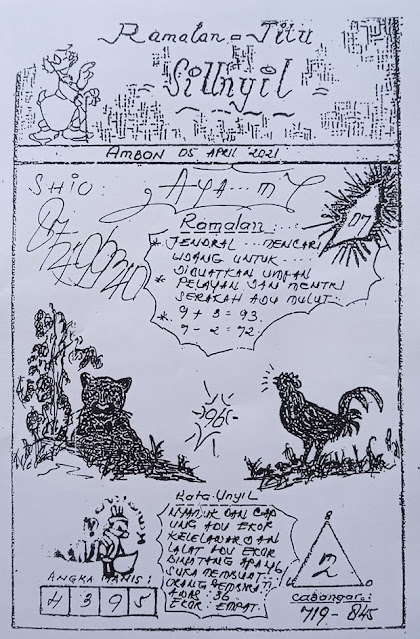 Ramalan = Jitu
Si Unyil
AMBON 05 APRIL 2021
SHIO:
AYA...M
Ramalan....
* JENDRAL... MENCARI
UDANG UNTUK....
DIBUATKAN UMPAN
* PELAYAN DAN MENTRI
SERAKAH ADU MULUT.
* 9 + 3 = 93.
7 - 2 = 72.
96
Kata Unyil
NYAMUK DAN CAP
UNG ADU EKOR
KELELAWAR DAN
LALAT ADU EKOR
BINATANG APA YG
SUKA MEMBUAT...
ORANG
AWAS: 36
EKOR: EMPAT.
ANGKA MANIS:
4 3 9 5
8
2
0
Cabangan:
719 - 845